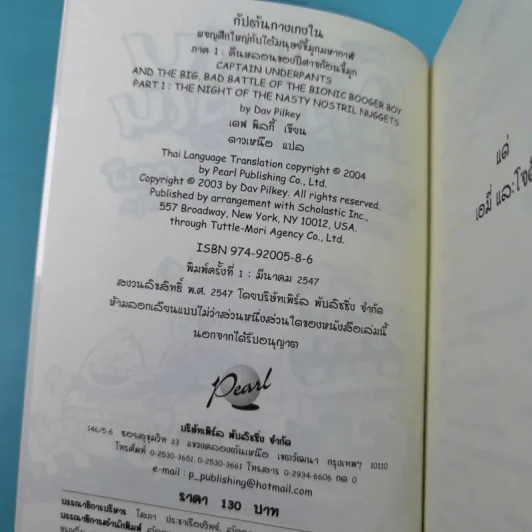 กัปตันกางเกงใน
ผจญศึกใหญ่กับไอ้มนุษย์ขี้มูกมหากาฬ
ภาค 1 : คืนหลอนของปีศาจก้อนขี้มูก
CAPTAIN UNDERPANTS
AND THE BIG, BAD BATTLE OF THE BIONIC BOOGER BOY
PART 1 : THE NIGHT OF THE NASTY NOSTRIL NUGGETS
by Dav Pilkey
เดฟ พิลกี้ เขียน
ดาวเหนือ แปล
Thai Language Translation copyright © 2004
by Pearl Publishing Co., Ltd.
Copyright © 2003 by Dav Pilkey. All rights reserved.
Published by arrangement with Scholastic Inc.,
557 Broadway, New York, NY 10012, USA.
through Tuttle-Mori Agency Co., Ltd.
ISBN 974-92005-8-6
พิมพ์ครั้งที่ 1 : มีนาคม 2547
สงวนลิขสิทธิ์ พ.ศ. 2547 โดยบริษัทเพิร์ล พับลิชชิ่ง จำกัด
ห้ามลอกเลียนแบบไม่ว่าส่วนหนึ่งส่วนใดของหนังสือเล่มนี้
นอกจากได้รับอนุญาต
Pearl
บริษัทเพิร์ล พับลิชชิ่ง จำกัด
146/5-6 ซอยสุขุมวิท 33 แขวงคลองตันเหนือ เขตวัฒนา กรุงเทพฯ 10110
โทรศัพท์ 0-2530-3651, 0-2530-3661 โทรสาร 0-2934-6606 กด 0
e-mail : p_publishing@hotmail.com
ราคา 130 บาท
บรรณาธิการบริหาร โสภา
บรรณาธิการสำนักพิมพ์
แด่
เอมี่ และ